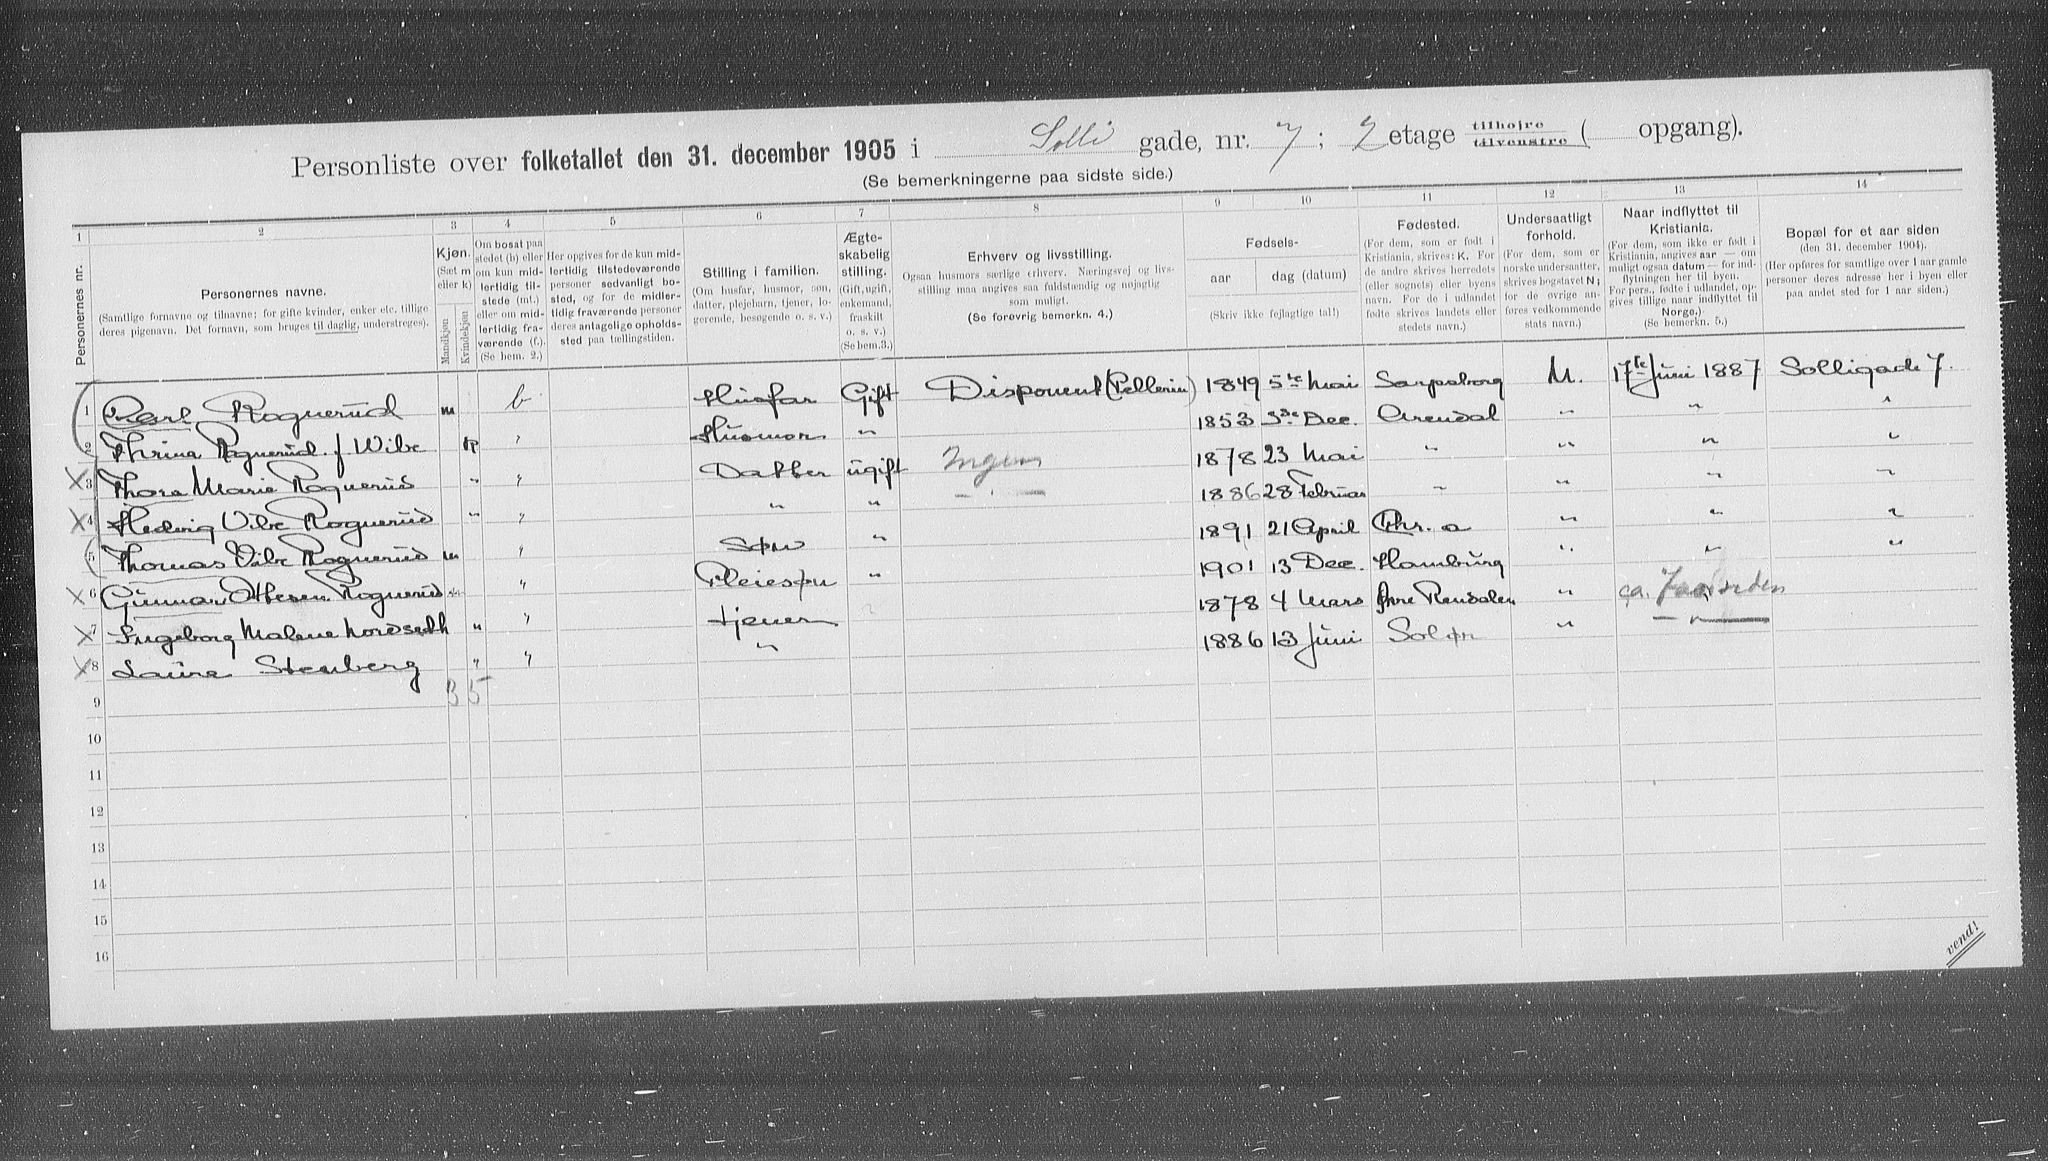 Personliste over folketallet den 31. december 1905 i Solli gade, nr. 7; 2 etage tilhøjre tilvenstre ( opgang).
(Se bemerkningerne paa sidste side.)
1 2 3 4 5 6 7 8 9 10 11 12 13 14
Personernes nr.
Personernes navne.
(Samtlige fornavne og tilnavne; for gifte kvinder, enker etc. tillige
deres pigenavn. Det fornavn, som bruges til daglig, understreges).
Kjøn.
(Sæt m
eller k)
Mandkjøn
Kvindekjøn
Om bosat paa
stedet (b) eller
om kun mid-
lertidig til-
stede (mt.)
eller om mid-
lertidig fra-
værende (f.).
(Se bem. 2.)
Her opgives for de kun mid-
lertidig tilstedeværende
personer sedvanligt bo-
sted, og for de midler-
tidig fraværende personer
deres antagelige opholds-
sted paa tællingstiden.
Stilling i familien.
(Om husfar, husmor, søn,
datter, plejebarn, tjener, lo-
gerende, besøgende o. s. v.)
Ægte-
skabelig
stilling.
(Gift, ugift,
enkemand,
fraskilt
o. s. v.)
(Se bem.3.)
Erhverv og livsstilling.
Ogsaa husmors særlige erhverv. Næringsvej og livs-
stilling maa angives saa fuldstændig og nøjagtig
som muligt.
(Se forøvrig bemerkn. 4.)
Fødsels-
aar dag (datum)
(Skriv ikke fejlagtige tal!)
Fødested.
(For dem, som er født i
Kristiania, skrives: K. For
de andre skrives herredets
(eller sognets) eller byens
navn. For de i udlandet
fødte skrives landets eller
stedets navn.)
Undersaatligt
forhold.
(For dem, som er
norske undersaatter,
skrives bogstavet N;
for de øvrige an-
føres vedkommende
stats navn.)
Naar indflyttet til
Kristiania.
(For dem, som ikke er født i
Kristiania, angives aar — om
muligt ogsaa datum — for ind-
flytningen her til byen.
For pers., fødte i udlandet, op-
gives tillige naar indflyttet til
Norge.)
(Se bemerkn. 5.)
Bopæl for et aar siden
(den 31. december 1904).
(Her opføres for samtlige over 1 aar gamle
personer deres adresse her i byen eller
paa andet sted for 1 aar siden.)
1 Carl Rognerud m b Husfar Gift Disponent (Pellerin) 1849 5te Mai Sarpsborg N. 17te Juni 1887 Solligade 7.
2 Thrina Rognerud f Vibe k " Husmor " 1853 3de Dec. Arendal " " "
3 Thora Marie Rognerud " " Datter ugift Ingen 1878 23 Mai " " " "
4 Hedvig Vibe Rognerud " " " " — " — 1886 28 Februar " " " "
5 Thomas Vibe Rognerud m " Søn " 1891 21 April Chr. a " " "
6 Gunnar Rognerud " Pleiesøn " 1901 13 Dec. Hamburg " " "
7 Ingeborg Malene " " tjener 1878 4 Mars Øvre Rendalen " ca.
8 Laura Stenberg " " " 1886 13 Juni Solør " — " —
3 5
9
10
11
12
13
14
15
16
vend!